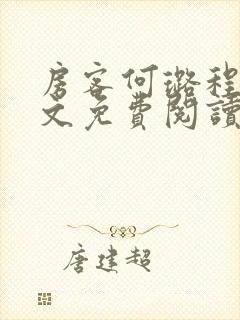 房客何璐程
文免費閱讀
唐建超